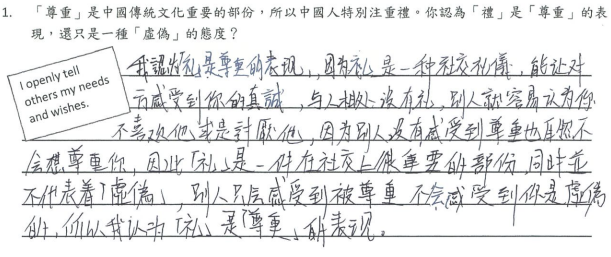 1. 「尊重」是中國傳統文化重要的部份，所以中國人特別注重禮。你認為「禮」是「尊重」的表
現，還只是一種「虛偽」的態度？
I openly tell
others my needs
and wishes.
我認为礼是尊重的表现，因为礼是一种社交礼儀，能让对
方感受到你的真誠，与人相处没有礼，别人就容易认为你
不喜欢他或是討厭他，因为别人没有感受到尊重也自然不
会想尊重你，因此「礼」是一件在社交上很重要的部份，同时並
不代表着「虛偽」，别人只会感受到被尊重 不会感受到你是虛偽
的，所以我认为「礼」是「尊重」的表现。